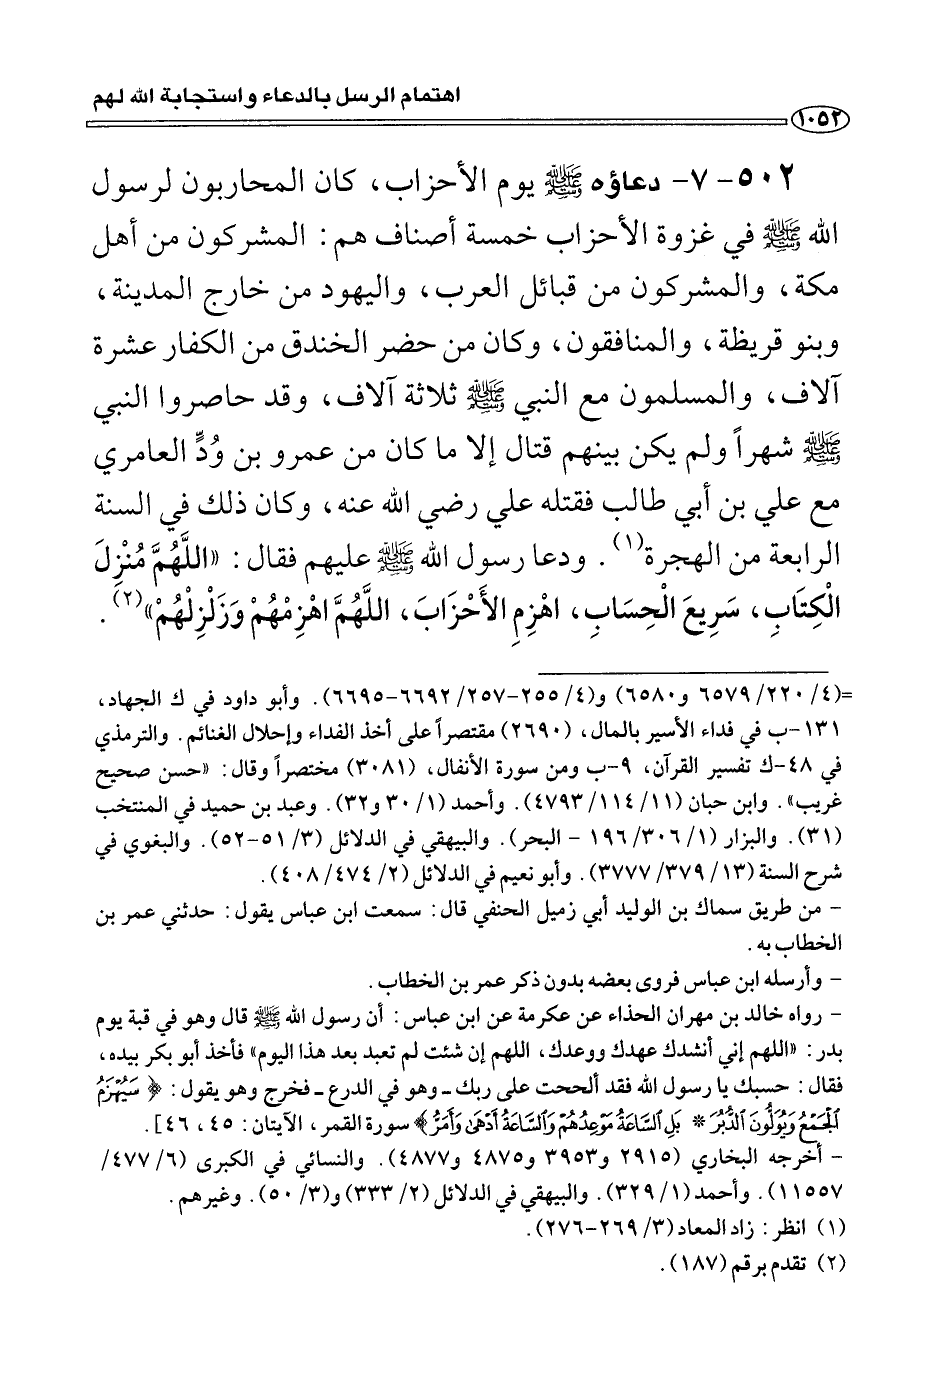 اهتمام الرسل بالدعاء واستجابة الله لهم
١٠٥٢
٥٠٢- ٧- دعاؤه ﷺ يوم الأحزاب، كان المحاربون لرسول
الله ﷺ في غزوة الأحزاب خمسة أصناف هم: المشركون من أهل
مكة، والمشركون من قبائل العرب، واليهود من خارج المدينة،
وبنو قريظة، والمنافقون، وكان من حضر الخندق من الكفار عشرة
آلاف، والمسلمون مع النبي ﷺ ثلاثة آلاف، وقد حاصروا النبي
ﷺ شهراً ولم يكن بينهم قتال إلا ما كان من عمرو بن وُدٍّ العامري
مع علي بن أبي طالب فقتله علي رضي الله عنه، وكان ذلك في السنة
الرابعة من الهجرة(١). ودعا رسول الله ﷺ عليهم فقال: «اللَّهُمَّ مُنْزِلَ
الْكِتَابِ، سَرِيعَ الْحِسَابِ، اهْزِمِ الأَحْزَابَ، اللَّهُمَّ اهْزِمْهُمْ وَزَلْزِلْهُمْ»(٢).
=(٤/ ٢٢٠/ ٦٥٧٩ و٦٥٨٠) و(٤/ ٢٥٥-٢٥٧/ ٦٦٩٢-٦٦٩٥). وأبو داود في ك الجهاد،
١٣١-ب في فداء الأسير بالمال، (٢٦٩٠) مقتصراً على أخذ الفداء وإحلال الغنائم. والترمذي
في ٤٨-ك تفسير القرآن، ٩-ب ومن سورة الأنفال، (٣٠٨١) مختصراً وقال: «حسن صحيح
غريب». وابن حبان (١١/ ١١٤/ ٤٧٩٣). وأحمد (١/ ٣٠ و٣٢). وعبد بن حميد في المنتخب
(٣١). والبزار (١/ ٣٠٦/ ١٩٦ - البحر). والبيهقي في الدلائل (٣/ ٥١-٥٢). والبغوي في
شرح السنة (١٣/ ٣٧٩/ ٣٧٧٧). وأبو نعيم في الدلائل (٢/ ٤٧٤/ ٤٠٨).
- من طريق سماك بن الوليد أبي زميل الحنفي قال: سمعت ابن عباس يقول: حدثني عمر بن
الخطاب به.
- وأرسله ابن عباس فروى بعضه بدون ذكر عمر بن الخطاب.
- رواه خالد بن مهران الحذاء عن عكرمة عن ابن عباس: أن رسول الله ﷺ قال وهو في قبة يوم
بدر: «اللهم إني أنشدك عهدك ووعدك، اللهم إن شئت لم تعبد بعد هذا اليوم» فأخذ أبو بكر بيده،
فقال: حسبك يا رسول الله فقد ألححت على ربك ـ وهو في الدرع ـ فخرج وهو يقول: ﴿سَيُهْزَمُ
ٱلْجَمْعُ وَيُوَلُّونَ ٱلدُّبُرَ * بَلِ ٱلسَّاعَةُ مَوْعِدُهُمْ وَٱلسَّاعَةُ أَدْهَىٰ وَأَمَرُّ﴾ سورة القمر، الآيتان: ٤٥، ٤٦].
- أخرجه البخاري (٢٩١٥ و٣٩٥٣ و٤٨٧٥ و٤٨٧٧). والنسائي في الكبرى (٦/ ٤٧٧/
١١٥٥٧). وأحمد (١/ ٣٢٩). والبيهقي في الدلائل (٢/ ٣٣٣) و(٣/ ٥٠). وغيرهم.
(١) انظر: زاد المعاد (٣/ ٢٦٩-٢٧٦).
(٢) تقدم برقم (١٨٧).